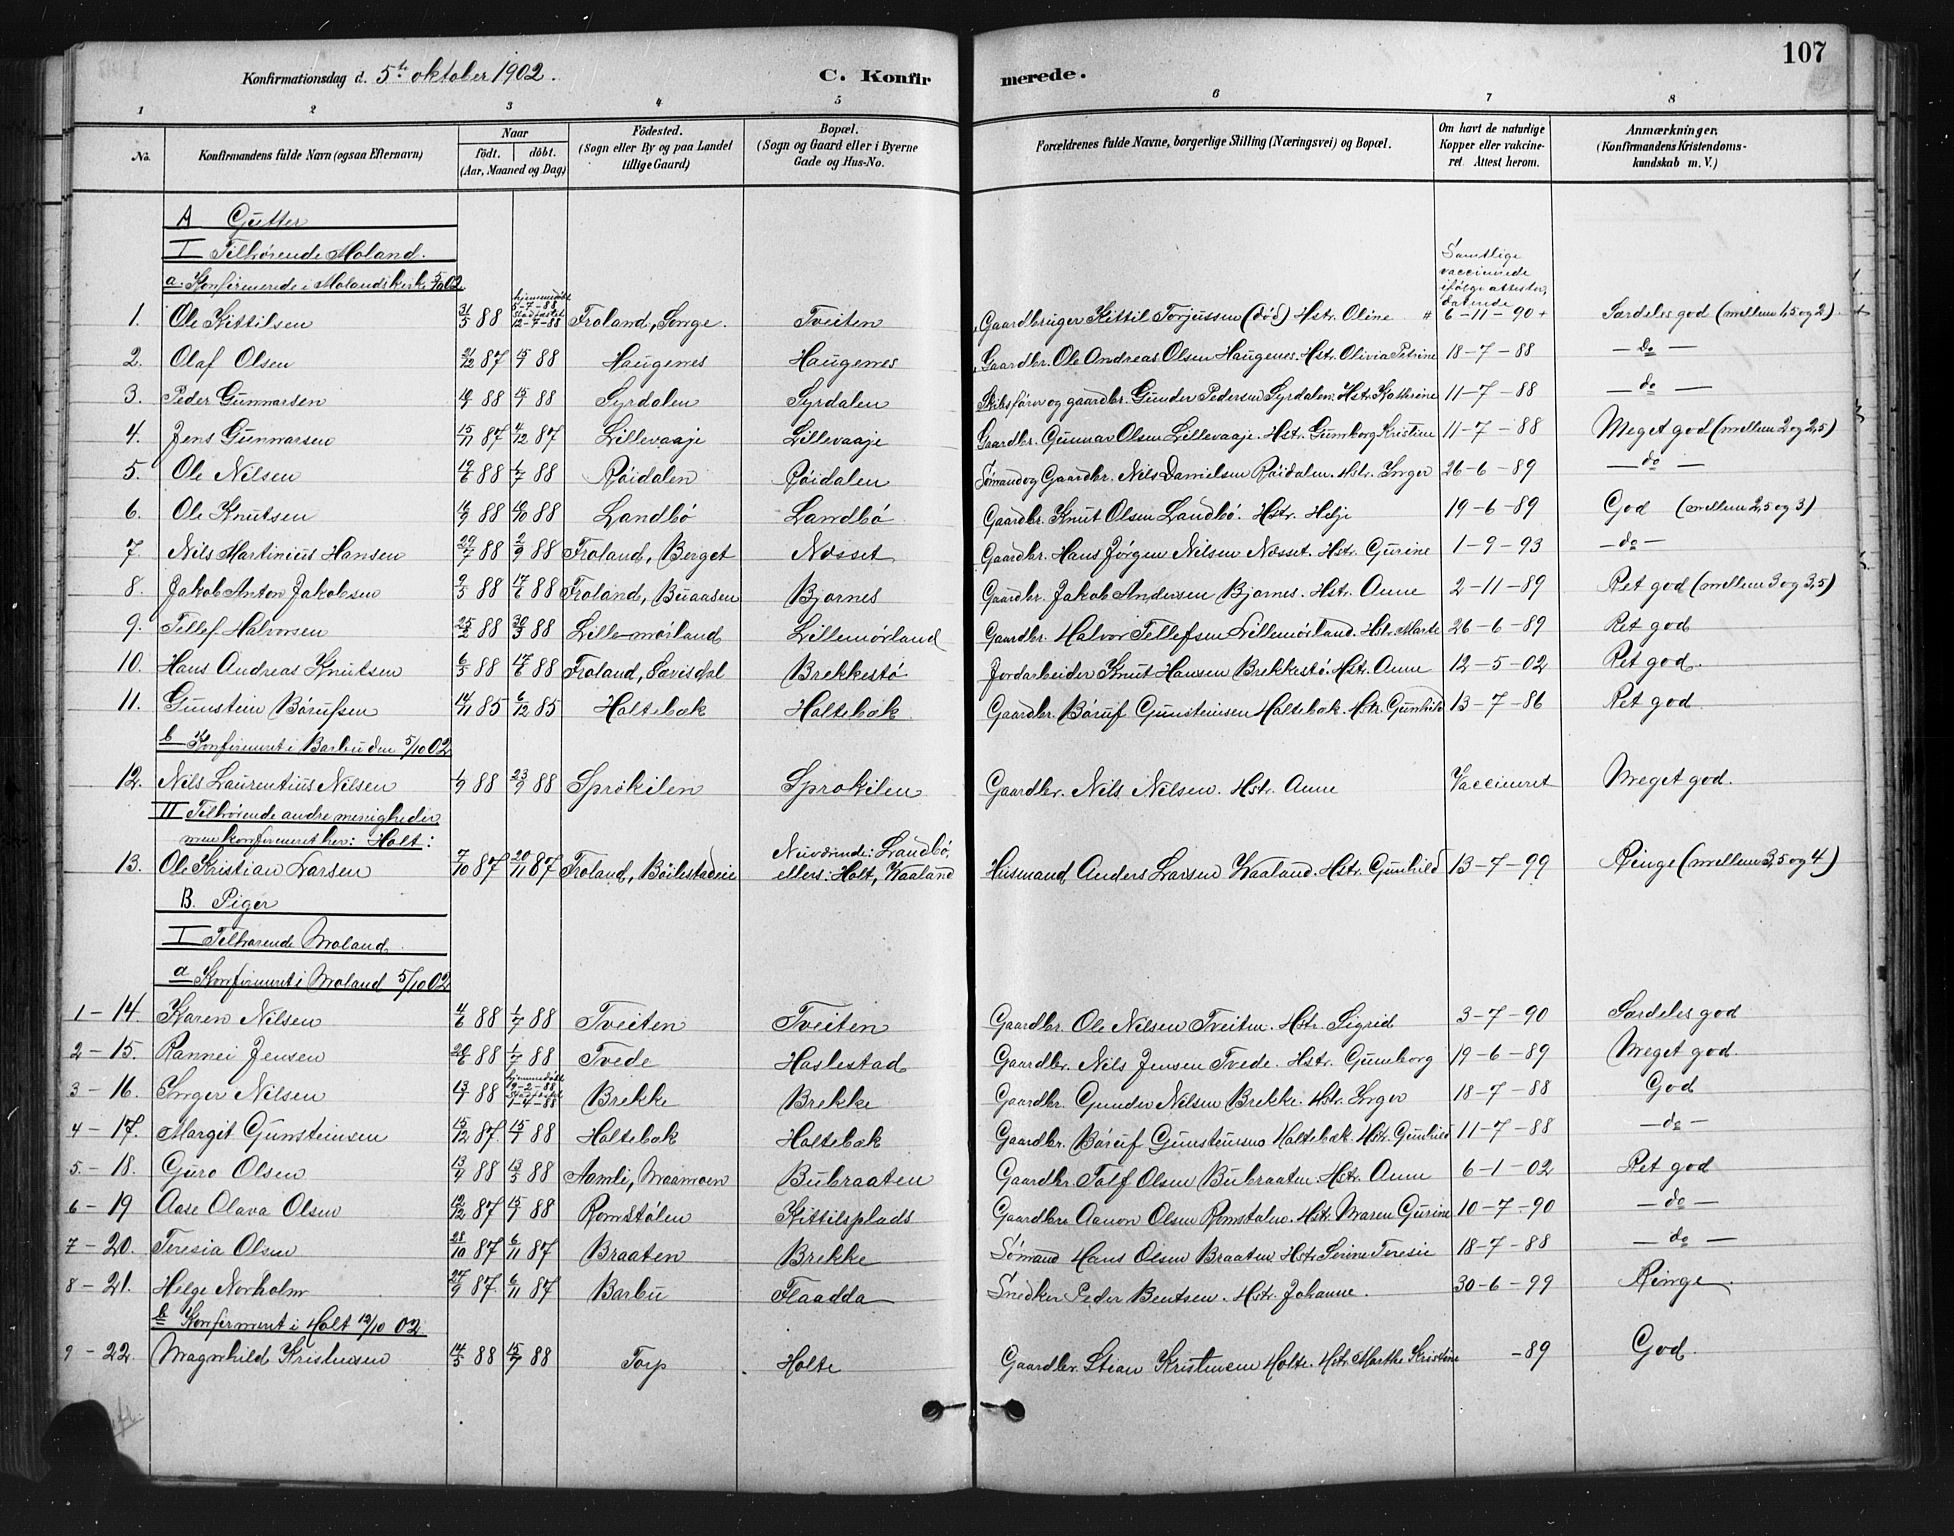 107
Konfirmationsdag d. 5te oktober 1902.
C. Konfirmerede.
1 2 3 4 5 6 7 8
No. Konfirmandens fulde Navn (ogsaa Efternavn) Naar födt. döbt. (Aar, Maaned og Dag) Födested. (Sogn eller By og paa Landet tillige Gaard) Bopæl. (Sogn og Gaard eller i Byerne Gade og Hus-No. Forældrenes fulde Navne, borgerlige Stilling (Næringsvei) og Bopæl. Om havt de naturlige Kopper eller vakcineret. Attest herom. Anmærkninger. (Konfirmandens Kristendomskundskab m. V.)
A Gutter
I Tilhørende Moland.
a. Konfirmerede i Molands kirke 5/10 02
Samtlige vaccinerede ifølge attester, daterede
1. Ole Kittilsen 31/5 88 hjemmedøbt 5-7-88 stadfæstet 12-7-88 Froland, Songe. Tveiten Gaardbruger Kittil Torjussen (død) Hstr. Oline 6-11-90 Særdeles god (mellem 1,5 og 2)
2. Olaf Olsen 21/12 87 88 Haugenes Haugenes Gaardbr. Ole Andreas Olsen Haugenes. Hstr. Olivia Petrine 18-7-88 — do —
3. Peder Gunnarsen 88 88 Syrdalen Syrdalen Skibsfører og gaardbr. Gunder Pedersen Syrdalen. Hstr. Kathrine 11-7-88 — do —
4. Jens Gunnarsen 15/11 87 4/12 87 Lillevaaje Lillevaaje Gaardbr. Gunnar Olsen Lillevaaje. Hstr. Gunborg Kristine 11-7-88 Meget god (mellem 2 og 2,5)
5. Ole Nilsen 88 1/7 88 Røidalen Røidalen Sømand og Gaardbr. Nils Danielsen Røidalen. Hstr. Inger 26-6-89 — do —
6. Ole Knutsen 88 88 Landbø Landbø Gaardbr. Knut Olsen Landbø. Hstr. Helje 19-6-89 God (mellem 2,5 og 3)
7. Nils Martinius Hansen 29/7 88 2/9 88 Froland, Berget Næsset Gaardbr. Hans Jørgen Nilsen Næsset. Hstr. Gurine 1-9-93 — do —
8. Jakob Anton Jakobsen 88 17/6 88 Froland, Buaasen Bjornes Gaardbr. Jakob Andersen Bjornes. Hstr. Anne 2-11-89 Ret god (mellem 3 og 3,5)
9. Tellef Halvorsen 25/2 88 30/3 88 Lillemørland Lillemørland Gaardbr. Halvor Tellefsen Lillemørland. Hstr. Marte 26-6-89 Ret god
10. Hans Andreas Knutsen 6/5 88 17/6 88 Froland, Savisdal Brekkestø Jordarbeider Knut Hansen Brekkestø. Hstr. Anne 12-5-02 Ret god.
11. Gunstein Børufsen 14/11 85 6/12 85 Holtebæk Holtebæk. Gaardbr. Børuf Gunsteinsen Holtebæk. Hstr. Gunhild 13-7-86 Ret god.
b Konfirmeret i Barbu den 5/10 02
12. Nils Laurentius Nilsen 1/9 88 23/9 88 Sprøkilen Sprøkilen Gaardbr. Nils Nilsen. Hstr. Anne Vaccineret Meget god.
II Tilhørende andre menigheder,
men konfirmeret her: Holt:
13. Ole Kristian Larsen 7/10 87 20/11 87 Froland, Bøilestadeie Nuværende: Landbø, ellers: Holt, Vaaland Husmand Anders Larsen Vaaland. Hstr. Gunhild 13-7-99 Ringe (mellem 3,5 og 4)
B. Piger
I Tilhørende Moland.
a Konfirmeret i Moland 5/10 02
1 - 14. Karen Nilsen 4/6 88 1/7 88 Tveiten Tveiten Gaardbr. Ole Nilsen Tveiten. Hstr. Sigrid 3-7-90 Særdeles god
2 - 15. Rannei Jensen 20/6 88 1/7 88 Tvede Haslestad Gaardbr. Nils Jensen Tvede. Hstr. Gunborg 19-6-89 Meget god.
3 - 16. Inger Nilsen 88 hjemmedøbt 19-2-88 stadfæstet 1-4-88 Brekke Brekke Gaardbr. Gunder Nilsen Brekke. Hstr. Inger 18-7-88 God
4 - 17. Margit Gunsteinsen 15/12 87. 88 Holtebæk Holtebæk Gaardbr. Børuf Gunsteinsen Holtebæk. Hstr. Gunhild 11-7-88 — do —
5. - 18. Guro Olsen 88 13/5 88 Aamli, Maamoen Bubraaten Gaardbr. Tolf Olsen Bubraaten. Hstr. Anne 6-1-02 Ret god
6 - 19 Aase Olava Olsen 12/12 87 88 Romstølen Kittilsplads Gaardbr. Aanon Olsen Romstølen. Hstr. Maren Gurine 10-7-90 — do —
7 - 20. Teresia Olsen 28/10 87 6/11 87 Braaten Brekke Sømand Hans Olsen Braaten Hstr. Serine Teresie 18-7-88 — do —
8 - 21. Helga Norholm 27/9 87. 6/11 87 Barbu Flaadda Snedker Peder Bentsen. Hstr. Johanne. 30-6-99 Ringe.
b Konfirmeret i Holt 12/10 02
9 - 22. Magnhild Kristensen 14/5 88 15/7 88 Torp Holte Gaardbr. Stian Kristensen Holte. Hstr. Marthe Kristine -89 God.